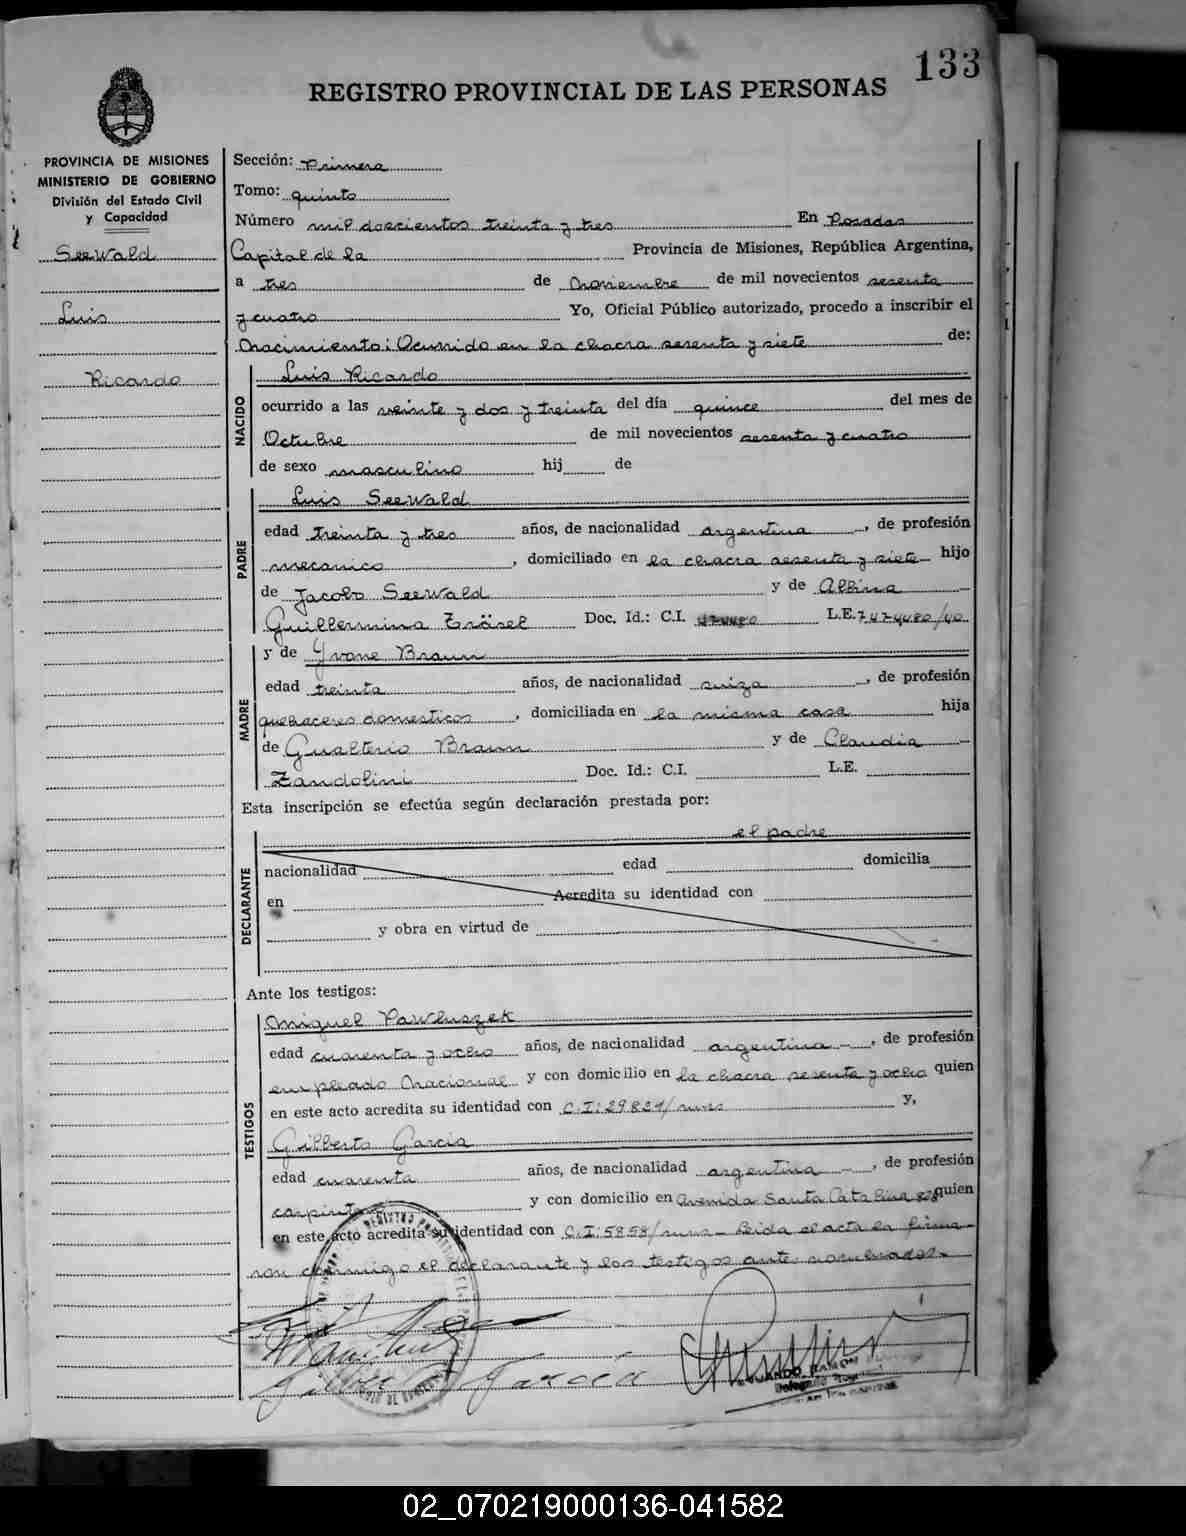 133
REGISTRO PROVINCIAL DE LAS PERSONAS
PROVINCIA DE MISIONES
MINISTERIO DE GOBIERNO
División del Estado Civil
y Capacidad
Seewald
Luis
Ricardo
Sección: Primera
Tomo: quinto
Número mil doscientos treinta y tres En Posadas
Capital de la Provincia de Misiones, República Argentina,
a tres de Noviembre de mil novecientos sesenta
y cuatro Yo, Oficial Público autorizado, procedo a inscribir el
Nacimiento: Ocurrido en la chacra sesenta y siete de:
NACIDO
Luis Ricardo
ocurrido a las veinte y dos y treinta del día quince del mes de
Octubre de mil novecientos sesenta y cuatro
de sexo masculino hij de
PADRE
Luis Seewald
edad treinta y tres años, de nacionalidad argentina, de profesión
mecanico, domiciliado en la chacra sesenta y siete hijo
de Jacobo Seewald y de Albina
Guillermina Träsel Doc. Id.: C.I. L.E. 7474480/40
MADRE
y de Yvone Braun
edad treinta años, de nacionalidad suiza, de profesión
quehaceres domesticos, domiciliada en la misma casa hija
de Gualterio Braun y de Claudia
Zandolini Doc. Id.: C.I. L.E.
Esta inscripción se efectúa según declaración prestada por:
DECLARANTE
el padre
nacionalidad edad domicilia
en Acredita su identidad con
y obra en virtud de
Ante los testigos:
TESTIGOS
Miguel Pawluszek
edad cuarenta y ocho años, de nacionalidad argentina, de profesión
empleado Nacional y con domicilio en la chacra sesenta y ocho quien
en este acto acredita su identidad con C.I: 29831/mns y,
Gilberto Garcia
edad cuarenta años, de nacionalidad argentina, de profesión
carpintero y con domicilio en Avenida Santa Catalina quien
en este acto acredita su identidad con C.I: 5858/mns - Leida el acta la firma-
ron conmigo el declarante y los testigos ante nombrados.-
Garcia
02_070219000136-041582